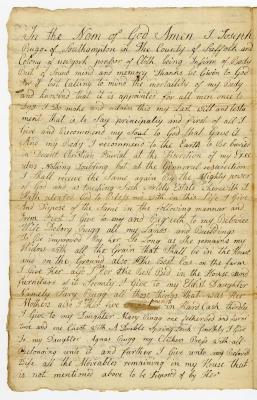 In the Nom of God Amen I Joseph
Rugg of Southampton in The County of Suffolk and
Colony of newyork being Infirm of Body
But of Sound mind and memory Thanks be Given to God
for it but Calling to mind the mortality of my Body
and knowing that it is appointed for all men once to
Dye I Do make and ordain this my Last Will and testa
ment that is to Say principally and First of all I
Give and Recommend my Soul to God that Gave it
And my Body I recommend to the Earth to be buried
in Decent Christian Burial at the Discretion of my Exec
utors nothing doubting but at the General resurrection
I Shall receive the Same again By the Mighty power
of God and as touching Such worldly Estate wherewith it
hath pleased God to bless me with in this Life I Give
and Dispose of the Same in the following manner and
form First I Give to my and Bequeath to my Beloved
Wife Rugg all my Lands and Buildings
to be improved by her So Long as She remains my
Widow with all the Grain that Shall be in the House
and on the Ground also the Best Cow on the farm
I Give her also I the Best Bed in the House and
furniture of it Secondly I Give to my Eldest Daughter
Mary Rugg all those things that was Her
Mothers also I Give in Hard Cash thirdly
I Give to my Daughter Mary Rugg one Bed and
one and one Chest with a Double Spring Lock fourthly I Give
To my Daughter Agnas Rugg my Clothes Press with all
Belonging unto it and further I Give unto my Beloved
Wife all the Moveables remaining in my House that
is not mentioned above to be Disposed of by Her